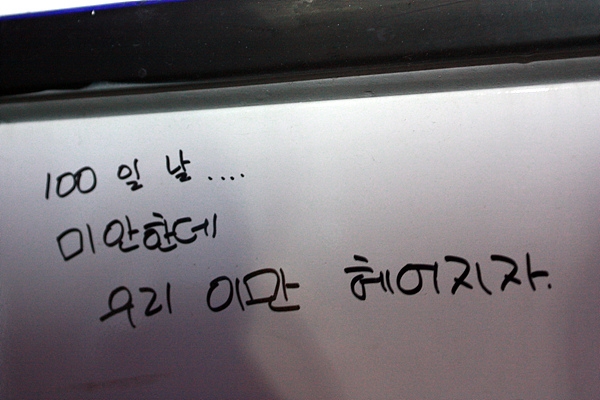 100 일 날 ....
미안한데
우리 이만 헤어지자.